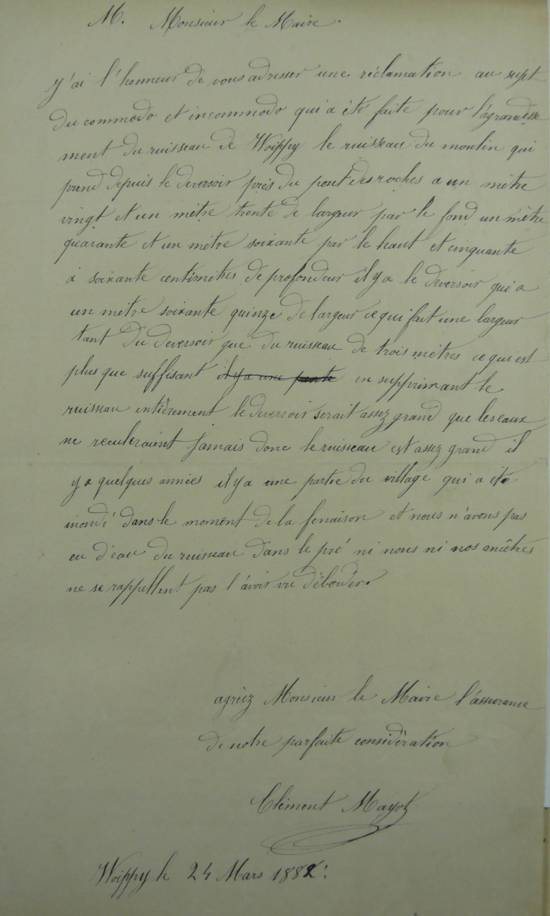 M. Monsieur le Maire.
j'ai l'honneur de vous adresser une réclamation au sujet
du commodo et incommodo qui a été faite pour l'agrandisse
ment du ruisseau de Woippy le ruisseau du moulin qui
prend depuis le deversoir près du pont des roches a un mètre
vingt et un mètre trente de largeur par le fond un mètre
quarante et un mètre soixante par le haut et cinquante
à soixante centimètres de profondeur il y a le deversoir qui a
un mètre soixante quinze de largeur ce qui fait une largeur
tant du deversoir que du ruisseau de trois mètres ce qui est
plus que suffisant il y a une en supprimant le
ruisseau entièrement le deversoir serait assez grand que les eaux
ne reculeraient jamais donc le ruisseau est assez grand il
y a quelques années il y a une partie du village qui a été
inondé dans le moment de la fenaison et nous n'avons pas
eu d'eau du ruisseau dans le pré ni nous ni nos ancêtres
ne se rappellent pas l'avoir vu déborder.
agréez Monsieur le Maire l'assurance
de notre parfaite considération
Clément Mayot
Woippy le 24 Mars 1882.